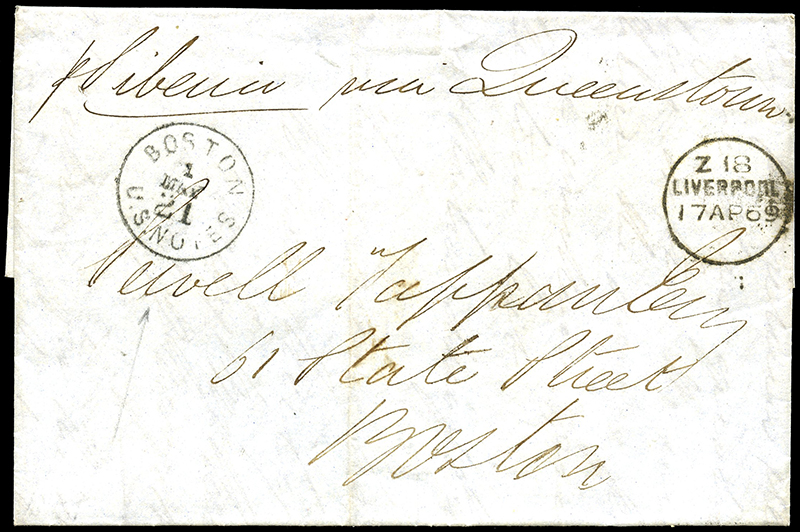 p Siberia via Queenstown
BOSTON
1
MAY
21
U.S.NOTES
Z 18
LIVERPOOL
17 AP 69
Sewell Tappan Esq
61 State Street
Boston